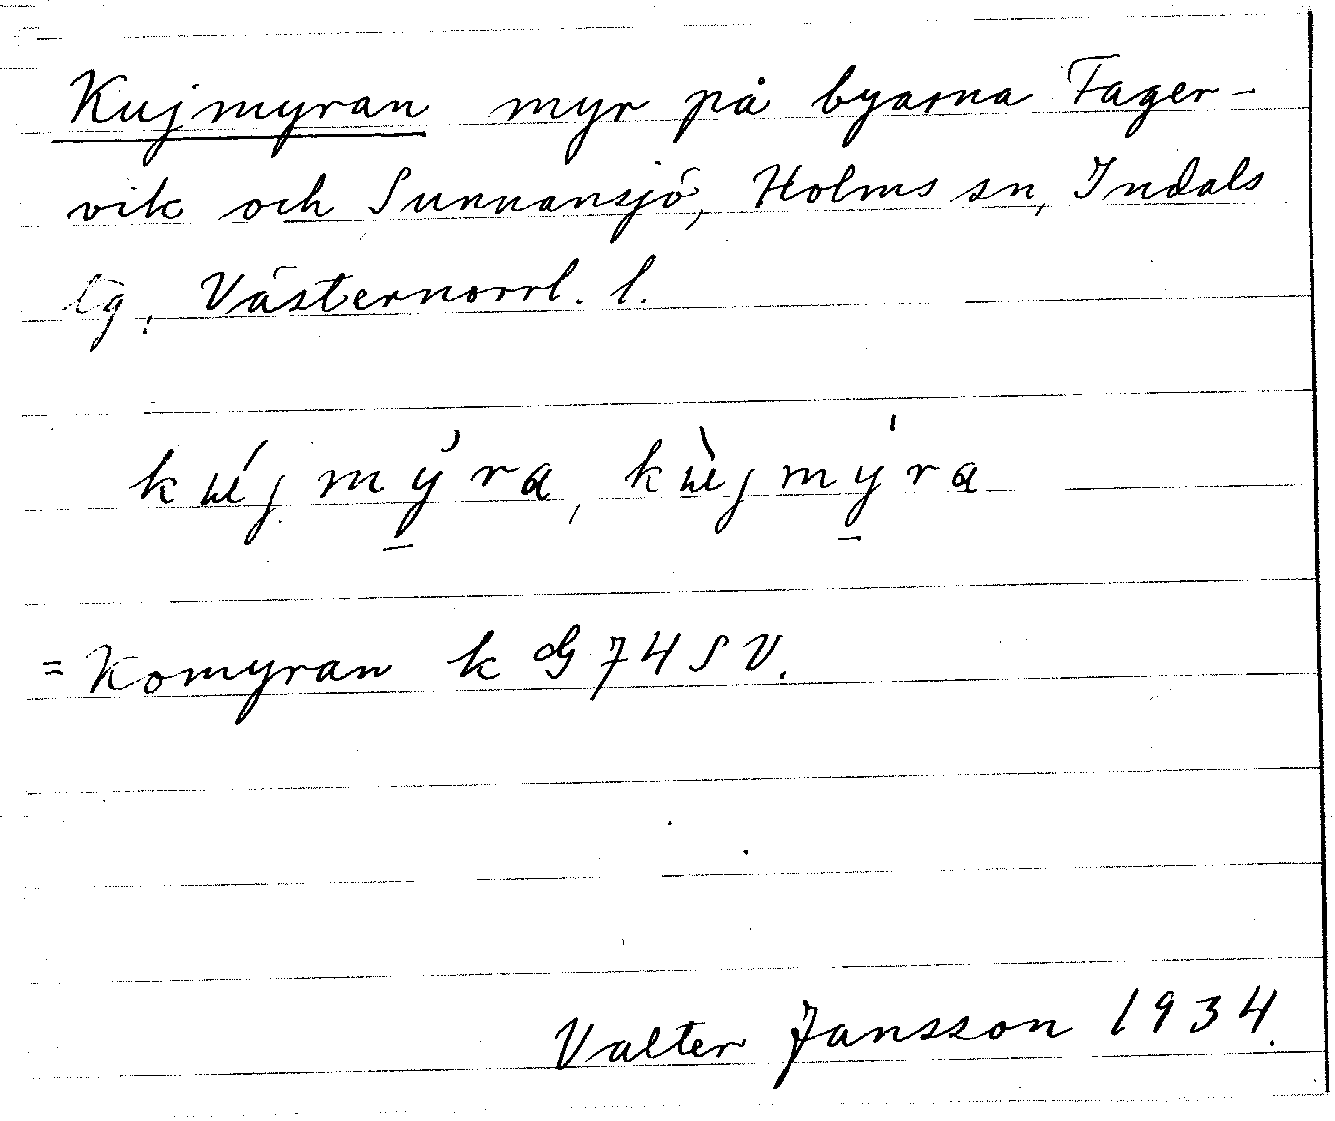 Kujmyran myr på byarna Fager-
vik och Sunnansjö, Holms sn, Indals
tg, Västernorrl. l.
kújmy̲ra, kùjmy̲ra
= Komyran k G 74 SV.
Valter Jansson 1934.